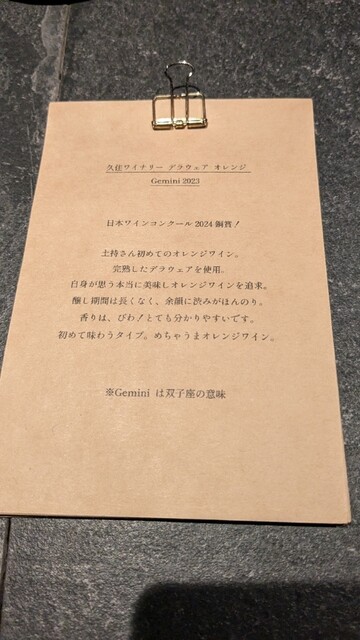 久住ワイナリー デラウェア オレンジ
Gemini 2023
日本ワインコンクール2024銅賞！
土持さん初めてのオレンジワイン。
完熟したデラウェアを使用。
自身が思う本当に美味しオレンジワインを追求。
醸し期間は長くなく、余韻に渋みがほんのり。
香りは、びわ！とても分かりやすいです。
初めて味わうタイプ。めちゃうまオレンジワイン。
※Gemini は双子座の意味